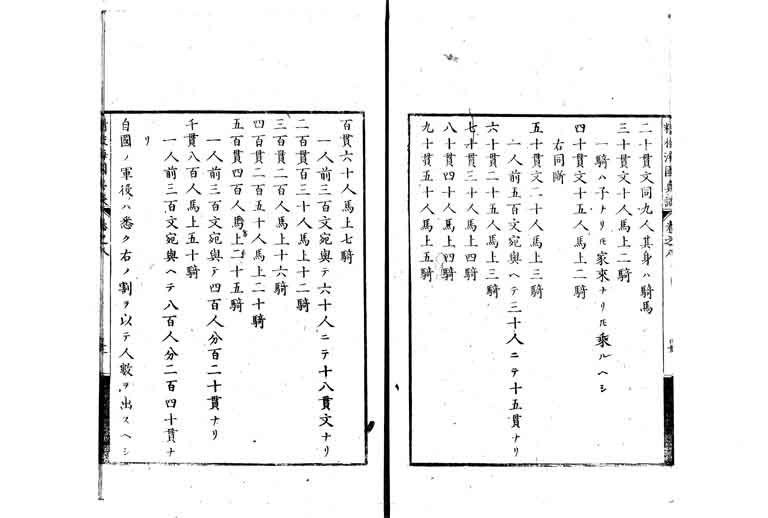 二十貫文同九人其身ハ騎馬
三十貫文十人馬上二騎
一騎ハ子ナリㇳモ家來ナリㇳモ乘ルヘシ
四十貫文十五人馬上二騎
右同斷
五十貫文二十人馬上三騎
一人前五百文宛與ヘテ三十人ニテ十五貫ナリ
六十貫二十五人馬上三騎
七十貫三十人馬上四騎
八十貫四十人馬上四騎
九十貫五十人馬上五騎
卷之八
百貫六十人馬上七騎
一人前三百文宛與テ六十人ニテ十八貫文ナリ
二百貫百三十人馬上十二騎
三百貫二百人馬上十六騎
四百貫二百五十人馬上二十騎
五百貫四百人馬上二十五騎
一人前三百文宛與テ四百人分百二十貫ナリ
千貫八百人馬上五十騎
一人前三百文宛與ヘテ八百人分二百四十貫ナ
リ
自國ノ軍役ハ悉ク右ノ割ヲ以テ人數ヲ出スヘシ